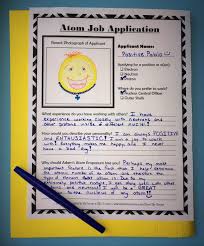 Atom Job Application
Recent Photograph of Applicant
Applicant Name:
Positive Pablo
Applying for a position as a(n):
Electron
Neutron
Proton
Where do you prefer to work?
Nucleus Central Office
Outer Shells
What experience do you have working with others? I have
experience working closely with neutrons and
other protons inside of different nuclei!
How would you describe your personality? I am always POSITIVE
and ENTHUSIASTIC! I am a joy to work
with! Everything makes me happy, and I never
have a bad day!
Why should Adam's Atom Emporium hire you? Perhaps my most
important feature is the fact that I can
the atomic number of an atom and therefore
type of element that atom is. Due to my
extremely positive nature, I get along with
neutrons and I would be a GREAT
to the nucleus of any atom!